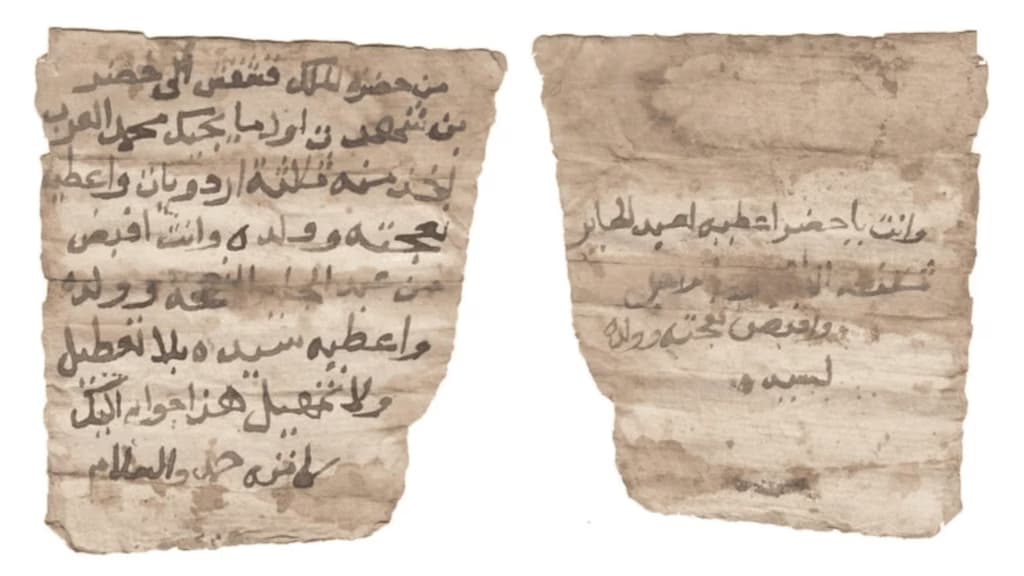 من حضرة الملك قشقش الى خضر
بن شنقهدت اول ما يجيك محمد العرب
لخذ منه ثلثة اردويات واعطيه
نعجته وولده وانت اقبض
من عبد الجابر النعجة وولده
واعطيه سيده بلا تعطيل
ولا تمهيل هذا جوابي اليك
حد والسلام
وانت يا خضر اعطيه لعبد الجابر
واقبض نعجته وولده
لسيده